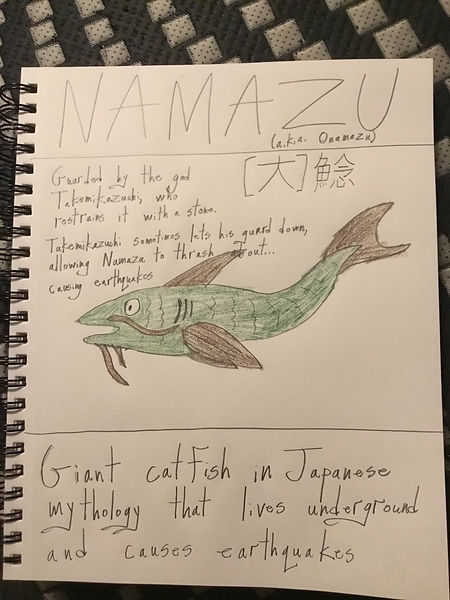 NAMAZU
(a.k.a. Onamazu)
[大]鯰
Guarded by the god
Takemikazushi, who
restrains it with a stone.
Takemikazushi sometimes lets his guard down,
allowing Namazu to thrash about...
causing earthquakes
Giant catfish in Japanese
mythology that lives underground
and causes earthquakes